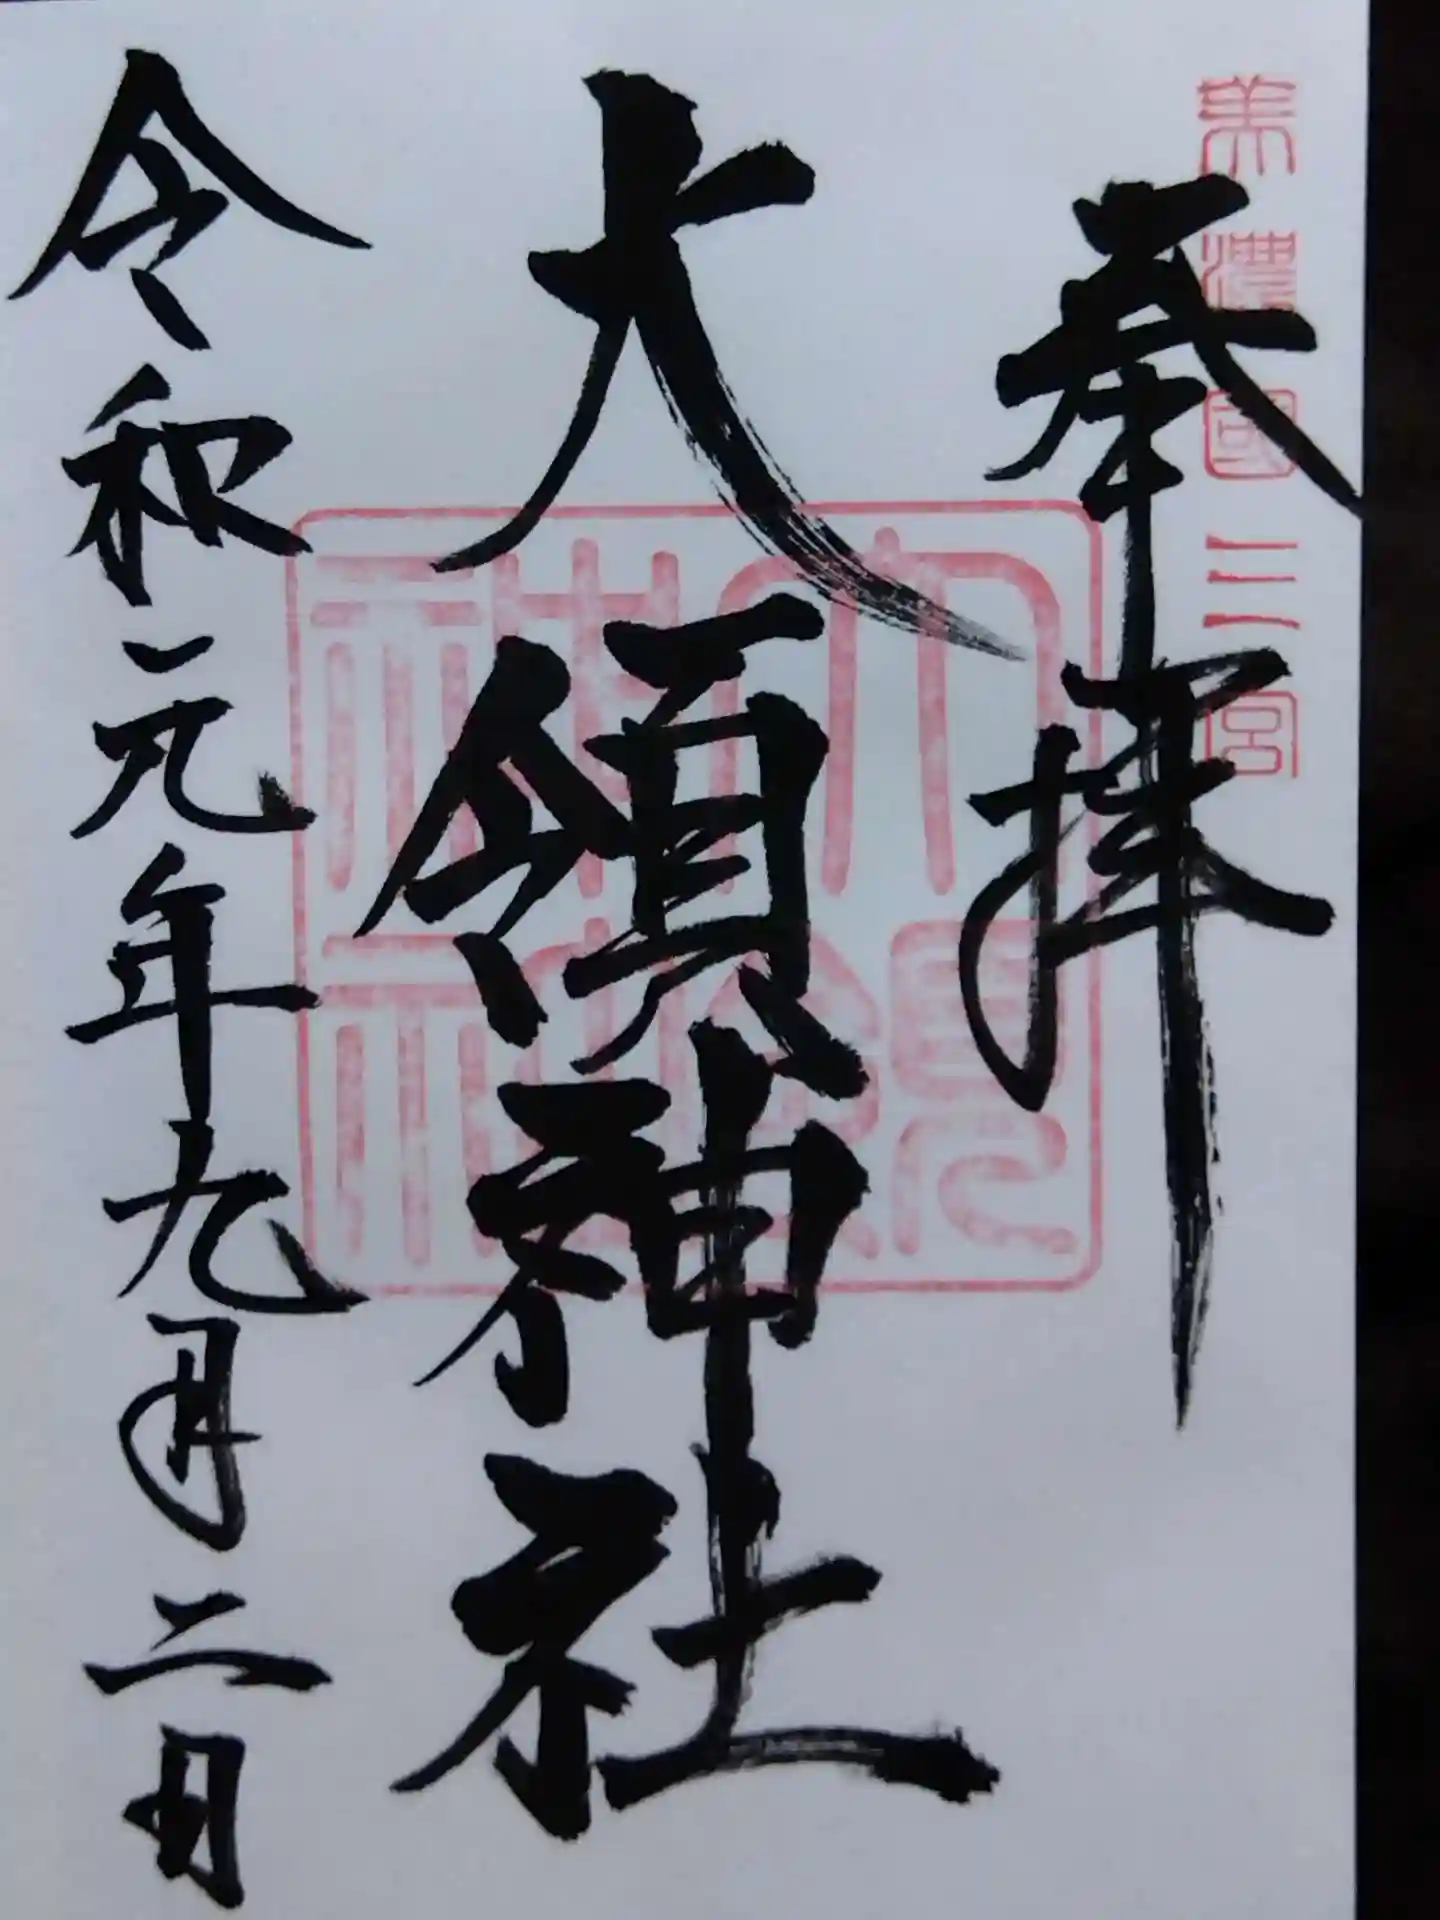 美濃國三宮
奉拝
大領神社
大領神社
令和元年九月二日